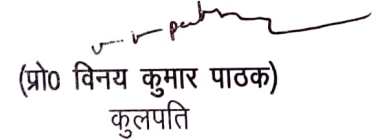 (प्रो0 विनय कुमार पाठक)
कुलपति